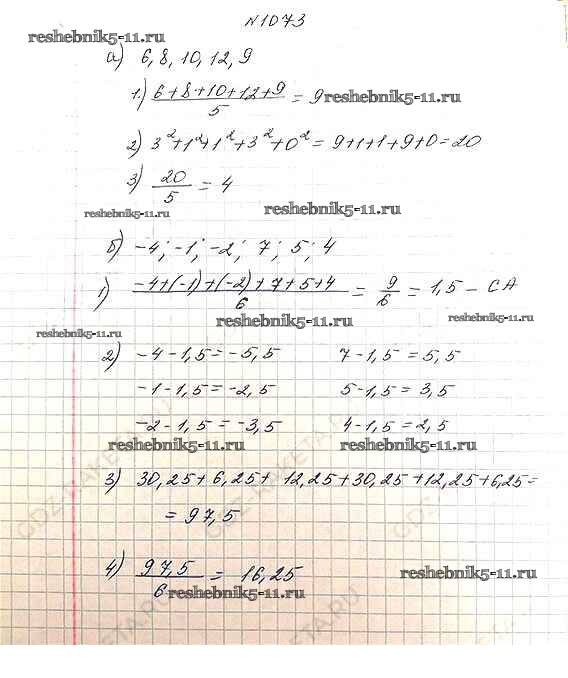 №1073
reshebnik5-11.ru
а) 6, 8, 10, 12, 9
1.) (6+8+10+12+9)/5 = 9 reshebnik5-11.ru
2) 3²+1²+1²+3²+0² = 9+1+1+9+0=20
3) 20/5 = 4
reshebnik5-11.ru reshebnik5-11.ru
б) -4; -1; -2; 7; 5; 4
1) (-4+(-1)+(-2)+7+5+4)/6 = 9/6 = 1,5 - СА
reshebnik5-11.ru reshebnik5-11.ru
reshebnik5-11.ru
2) -4-1,5=-5,5 7-1,5=5,5
-1-1,5=-2,5 5-1,5=3,5
-2-1,5=-3,5 4-1,5=2,5
reshebnik5-11.ru reshebnik5-11.ru
3) 30,25+6,25+12,25+30,25+12,25+6,25=
= 97,5
4) 97,5/6 = 16,25
reshebnik5-11.ru reshebnik5-11.ru